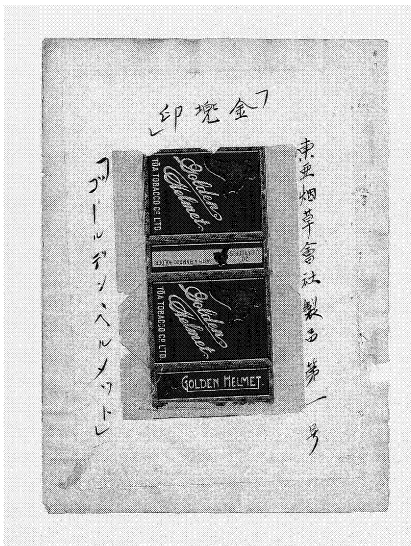 「金塊印」
東亜烟草會社製品第一号
「ゴールデン、ヘルメット」
Golden
Helmet
TOA TOBACCO CO. LTD
Golden
Helmet
TOA TOBACCO CO. LTD
GOLDEN HELMET